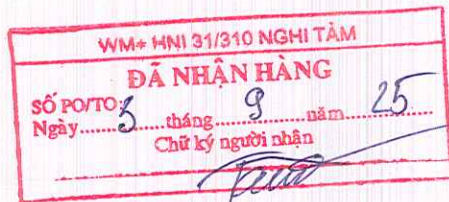 WM+ HNI 31/310 NGHI TÀM
ĐÃ NHẬN HÀNG
SỐ PO/TO:
Ngày.....5.....tháng.....9.....năm.....25
Chữ ký người nhận